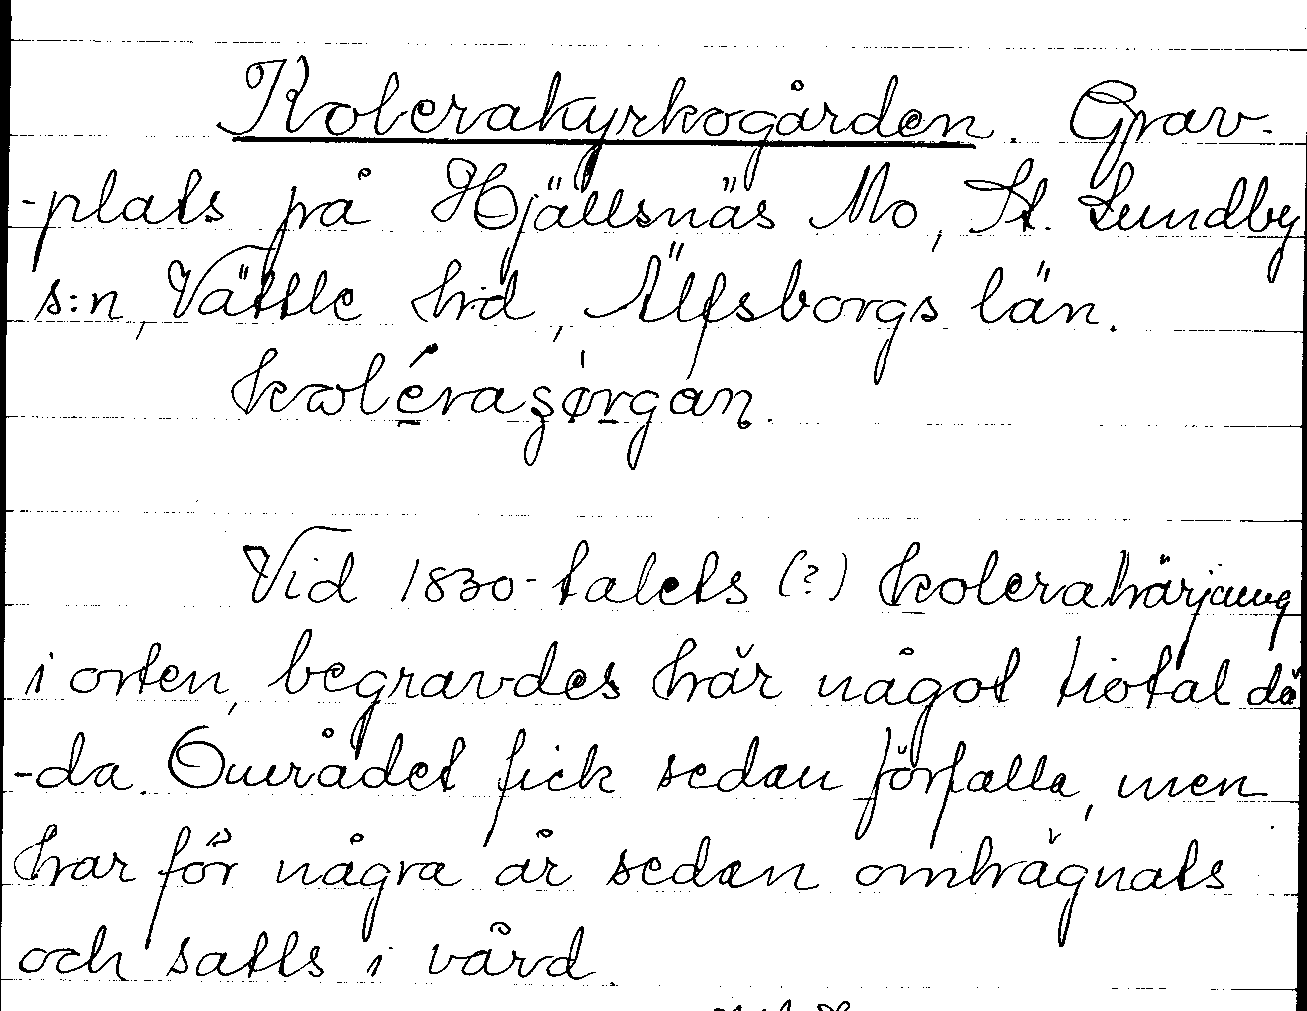 Kolerakyrkogården. Grav-
-plats på Hjällsnäs Mo, St. Lundby
s:n, Vättle hd, Älfsborgs län.
Vid 1830-talets (?) kolerahärjning
i orten, begravdes här något tiotal dö
-da. Området fick sedan förfalla, men
har för några år sedan omhägnats
och satts i vård.